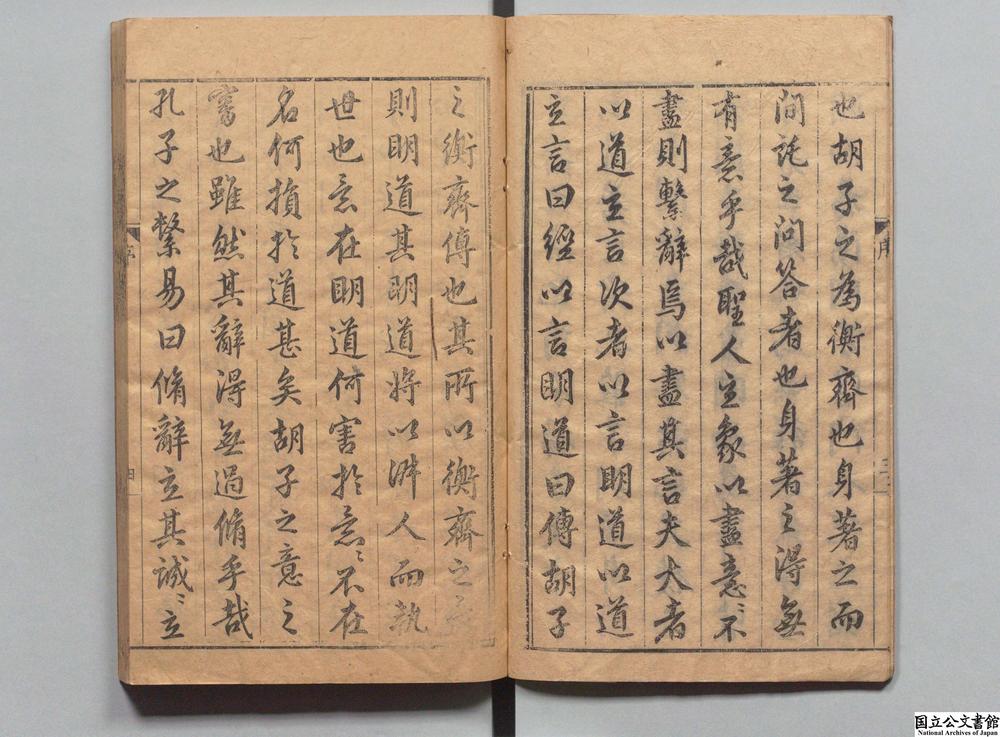 序
三
也胡子之為衡齊也身著之而
問託之問答者也身著之得無
有意乎哉聖人立象以盡意〻不
盡則繫辭焉以盡其言夫大者
以道立言次者以言明道以道
立言曰經以言明道曰傳胡子
之衡齊傳也其所以衡齊之
則明道其明道將以淑人而執
世也意在明道何害於意〻不在
名何損於道甚矣胡子之意之
審也雖然其辭得無過脩乎哉
孔子之繫易曰脩辭立其誠〻立
序
四
国立公文書館
National Archives of Japan